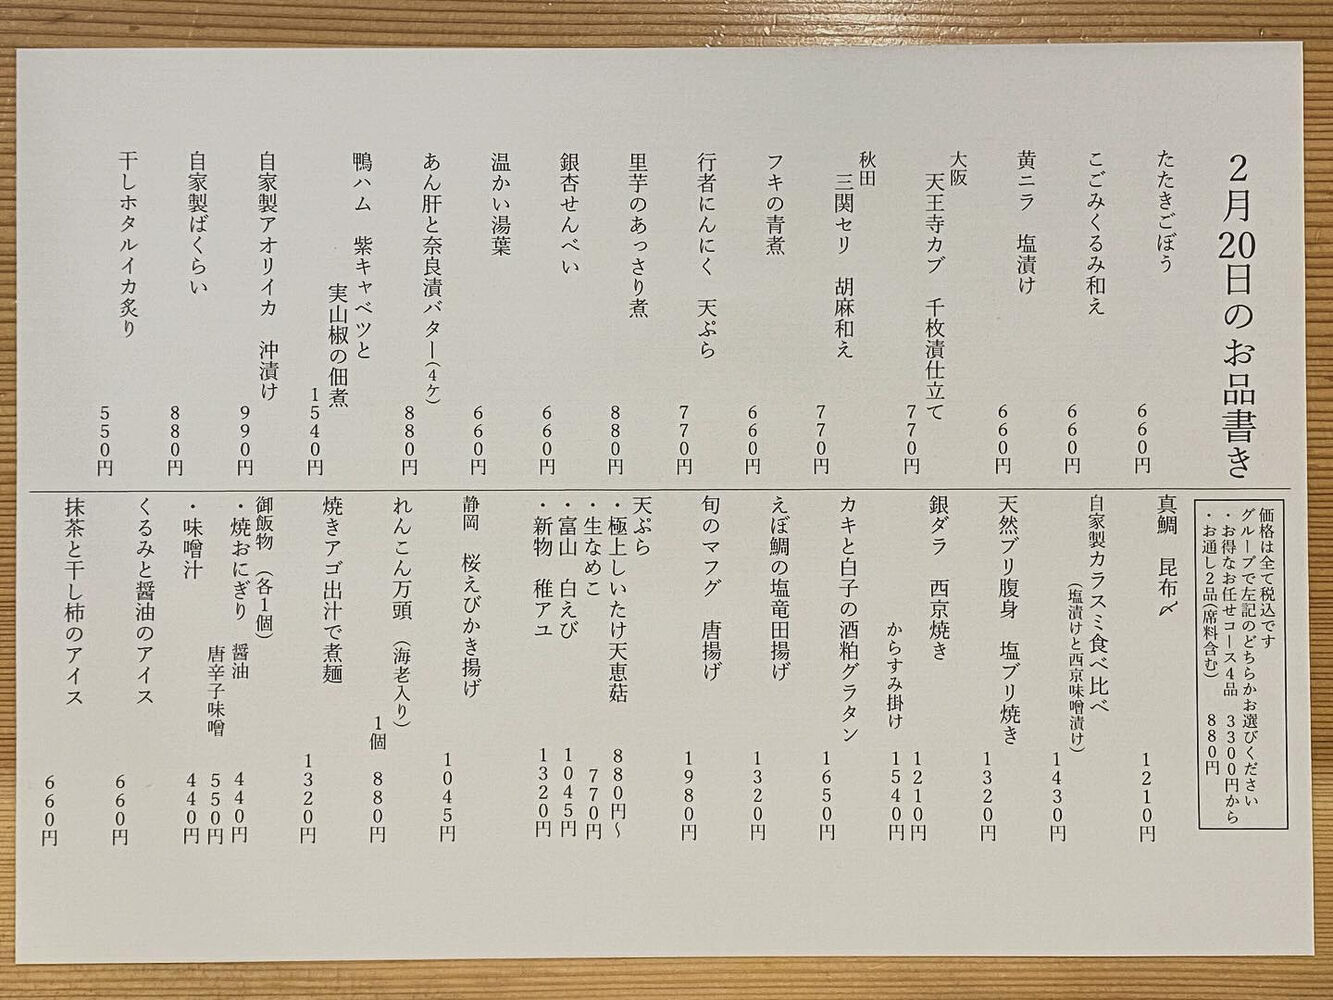 2月20日のお品書き
たたきごぼう 660円
こごみくるみ和え 660円
黄ニラ 塩漬け 660円
大阪
天王寺カブ 千枚漬仕立て 770円
秋田
三関セリ 胡麻和え 770円
フキの青煮 660円
行者にんにく 天ぷら 770円
里芋のあっさり煮 880円
銀杏せんべい 660円
温かい湯葉 660円
あん肝と奈良漬バター(4ケ) 880円
鴨ハム 紫キャベツと
実山椒の佃煮
1540円
自家製アオリイカ 沖漬け 990円
自家製ばくらい 880円
干しホタルイカ炙り 550円
価格は全て税込です
グループで左記のどちらかお選びください
・お得なお任せコース4品 3300円から
・お通し2品(席料含む) 880円
真鯛 昆布〆 1210円
自家製カラスミ食べ比べ
(塩漬けと西京味噌漬け)
1430円
天然ブリ腹身 塩ブリ焼き 1320円
銀ダラ 西京焼き 1210円
からすみ掛け 1540円
カキと白子の酒粕グラタン 1650円
えぼ鯛の塩竜田揚げ 1320円
旬のマフグ 唐揚げ 1980円
天ぷら
・極上しいたけ天恵菇 880円～
・生なめこ 770円
・富山 白えび 1045円
・新物 稚アユ 1320円
静岡 桜えびかき揚げ 1045円
れんこん万頭 (海老入り)
1個 880円
焼きアゴ出汁で煮麺 1320円
御飯物 (各1個)
・焼おにぎり 醤油 440円
唐辛子味噌 550円
・味噌汁 440円
くるみと醤油のアイス 660円
抹茶と干し柿のアイス 660円